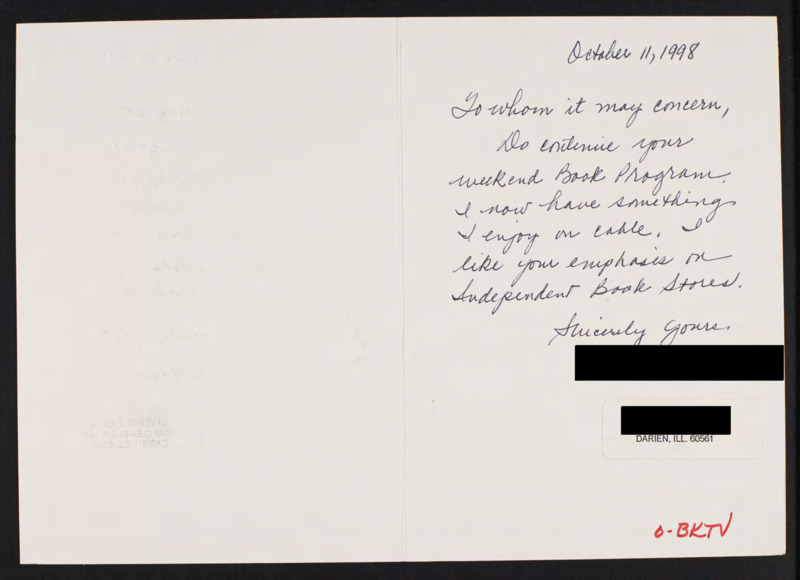 October 11, 1998
To whom it may concern,
Do continue your
weekend Book Program.
I now have something
I enjoy on cable. I
like your emphasis on
Independent Book Stores.
Sincerely yours.
DARIEN, ILL. 60561
o-BKTV